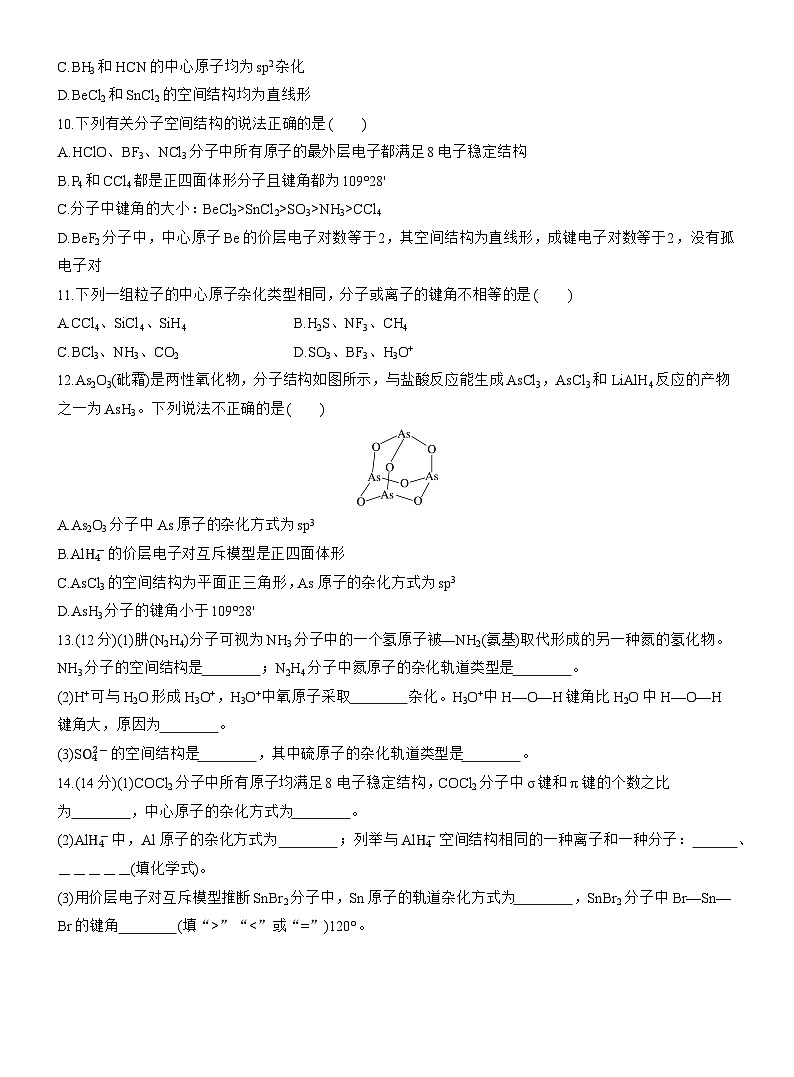 C.BH₃和HCN的中心原子均为sp²杂化
D.BeCl₂和SnCl₂的空间结构均为直线形
10.下列有关分子空间结构的说法正确的是(　　)
A.HClO、BF₃、NCl₃分子中所有原子的最外层电子都满足8电子稳定结构
B.P₄和CCl₄都是正四面体形分子且键角都为109°28'
C.分子中键角的大小:BeCl₂>SnCl₂>SO₃>NH₃>CCl₄
D.BeF₂分子中,中心原子Be的价层电子对数等于2,其空间结构为直线形,成键电子对数等于2,没有孤
电子对
11.下列一组粒子的中心原子杂化类型相同,分子或离子的键角不相等的是(　　)
A.CCl₄、SiCl₄、SiH₄　　B.H₂S、NF₃、CH₄
C.BCl₃、NH₃、CO₂　　D.SO₃、BF₃、H₃O⁺
12.As₂O₃(砒霜)是两性氧化物,分子结构如图所示,与盐酸反应能生成AsCl₃,AsCl₃和LiAlH₄反应的产物
之一为AsH₃。下列说法不正确的是(　　)
As
O O
O
As O As
As
O O
A.As₂O₃分子中As原子的杂化方式为sp³
B.AlH₄⁻的价层电子对互斥模型是正四面体形
C.AsCl₃的空间结构为平面正三角形,As原子的杂化方式为sp³
D.AsH₃分子的键角小于109°28'
13.(12分)(1)肼(N₂H₄)分子可视为NH₃分子中的一个氢原子被—NH₂(氨基)取代形成的另一种氮的氢化物。
NH₃分子的空间结构是________;N₂H₄分子中氮原子的杂化轨道类型是________。
(2)H⁺可与H₂O形成H₃O⁺,H₃O⁺中氧原子采取________杂化。H₃O⁺中H—O—H键角比H₂O中H—O—H
键角大,原因为________。
(3)SO₄²⁻的空间结构是________,其中硫原子的杂化轨道类型是________。
14.(14分)(1)COCl₂分子中所有原子均满足8电子稳定结构,COCl₂分子中σ键和π键的个数之比
为________,中心原子的杂化方式为________。
(2)AlH₄⁻中,Al原子的杂化方式为________;列举与AlH₄⁻空间结构相同的一种离子和一种分子:______、
_____(填化学式)。
(3)用价层电子对互斥模型推断SnBr₂分子中,Sn原子的轨道杂化方式为________,SnBr₂分子中Br—Sn—
Br的键角________(填“>”“<”或“=”)120°。